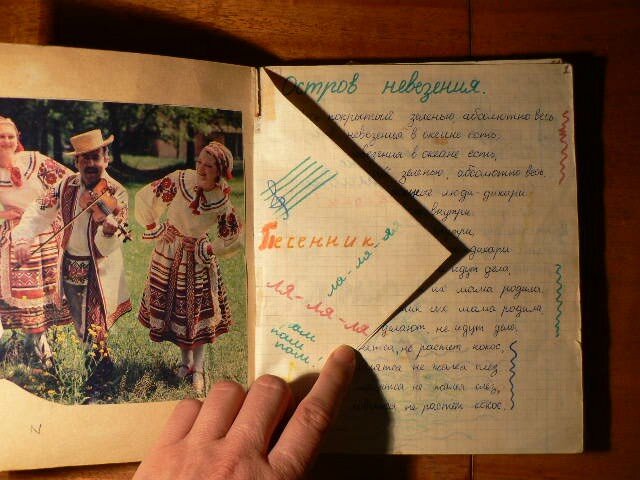 Остров невезения.
покрытый зеленью, абсолютно весь
невезения в океане есть,
невезения в океане есть,
зеленью, абсолютно весь
люди-дикари
внутри.
дикари
идут дела,
их мама родила,
их мама родила,
делают, не идут дела,
не растет кокос,
не жалея слез,
не жалея слез,
не растет кокос.
Песенник.
ля-ля-ля
ля-ля-ля
пам
пам!